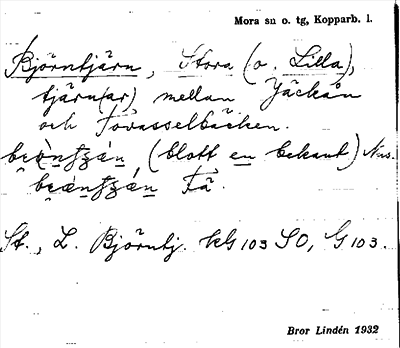 Mora su o. tg, Kopparb. l.
Björntjärn, Stora (o. Lilla),
tjärn(ar) mellan Jäckån
och Tovasselbäcken.
(blott en bekant) Nus.
Få.
St., L. Björntj. kG 103 SO, G 103.
Bror Lindén 1932